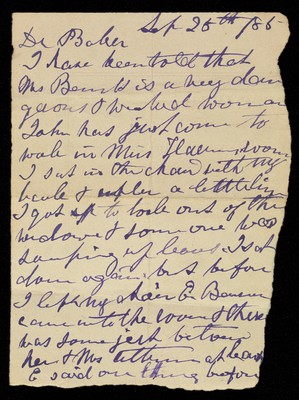 Sep 25th/85
Dr Baker
I have been told that
Mrs Beard is a very dan
gerous & wicked woman
John has just come to
wake in Miss room
I sat in the chair with my
book & a little
I got up to look out of the
window & someone was
up leaves I sat
down again but before
I left my chair E. Benson
came into the room & there
was some jest between
her & Mrs
E said one thing before